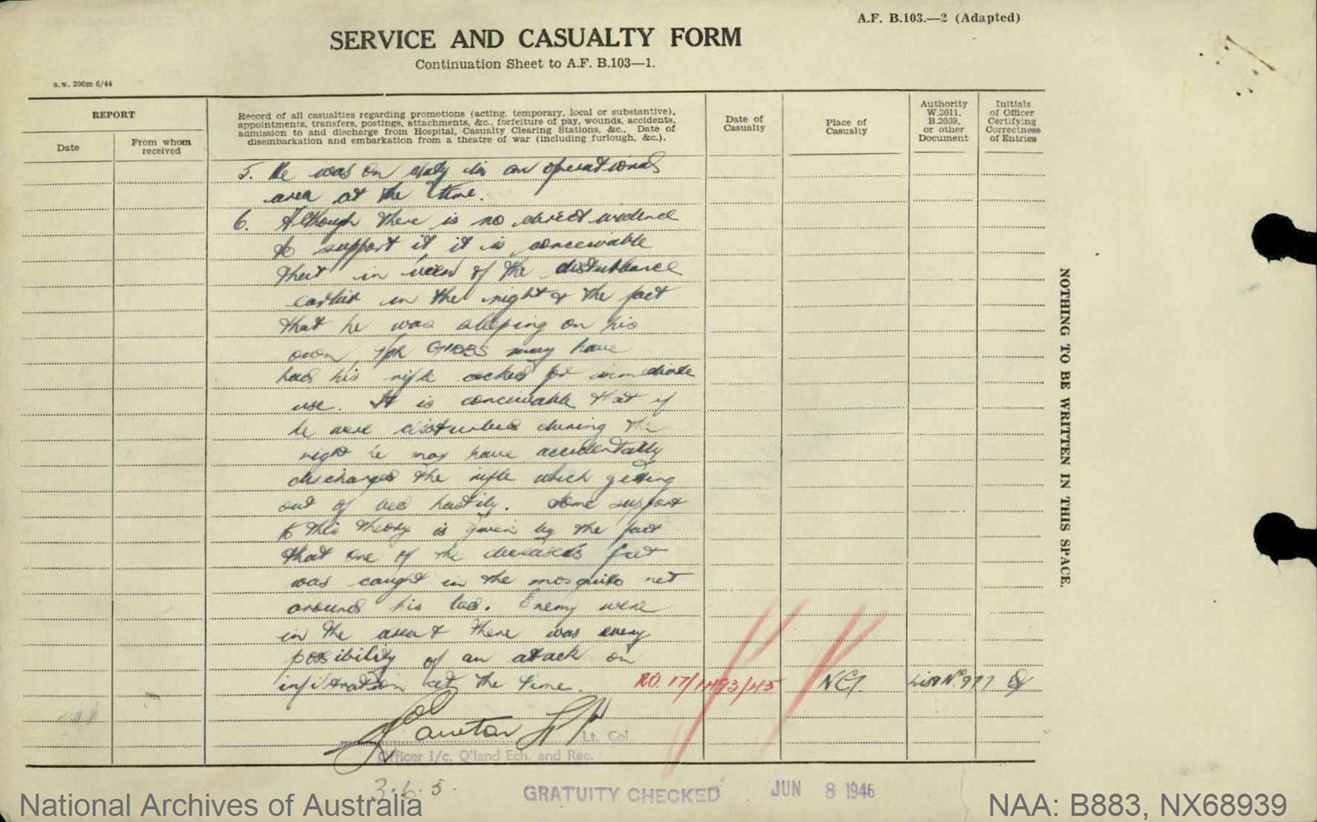 A.F. B.103.—2 (Adapted)
SERVICE AND CASUALTY FORM
Continuation Sheet to A.F. B.103—1.
a.w. 200m 6/44
REPORT
Date
From whom received
Record of all casualties regarding promotions (acting, temporary, local or substantive),
appointments, transfers, postings, attachments, &c., forfeiture of pay, wounds, accidents,
admission to and discharge from Hospital, Casualty Clearing Stations, &c., Date of
disembarkation and embarkation from a theatre of war (including furlough, &c.).
Date of Casualty
Place of Casualty
Authority W.3011, B.2039, or other Document
Initials of Officer Certifying Correctness of Entries
5. He was on duty in an operational
area at the time.
6. Although there is no direct evidence
to support it it is conceivable
that in view of the disturbance
earlier in the night & the fact
that he was sleeping on his
own, GIBBS may have
had his rifle cocked for immediate
use. It is conceivable that if
he were disturbed during the
night he may have accidentally
discharged the rifle which getting
out of bed hastily. Some support
to this theory is given by the fact
that one of the deceased's feet
was caught in the mosquito net
around his bed. Enemy were
in the area & there was every
possibility of an attack or
infiltration at the time.
R.O. 17/1493/45
List No. 977
Lt. Col.
Officer I/c. Q'land Ech. and Rec.
3.6.5.
GRATUITY CHECKED
JUN 8 1946
NOTHING TO BE WRITTEN IN THIS SPACE.
National Archives of Australia
NAA: B883, NX68939